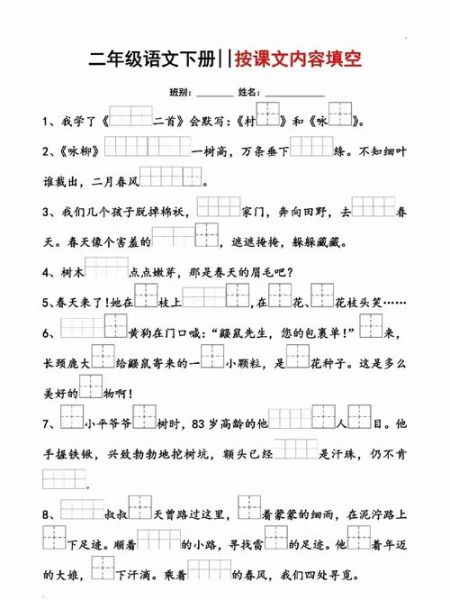 二年级语文下册||按课文内容填空
班别：________ 姓名：________
1、我学了《 二首》会默写：《村 》和《咏 》。
2、《咏柳》 一树高，万条垂下 绦。不知细叶
谁裁出，二月春风 。
3、我们几个孩子脱掉棉袄， 家门，奔向田野，去 春
天。春天像个害羞的 ，遮遮掩掩，躲躲藏藏。
4、树木 点点嫩芽，那是春天的眉毛吧？
5、春天来了！她在 枝上 ，在 花、 花枝头笑……
6、 黄狗在门口喊：“鼹鼠先生，您的包裹单！” 来，
长颈鹿大 给鼹鼠寄来的一 小颗粒，是 花种子。这是多么
美好的 物啊！
7、 小平爷爷 树时，83岁高龄的他 人 目。他
手握铁锹，兴致勃勃地挖树坑，额头已经 是汗珠，仍不肯
。
8、 叔叔 天曾路过这里， 着蒙蒙的细雨，在泥泞路上
下足迹。顺着 的小路，寻找雷 的足迹。他 着年迈
的大娘， 下汗滴。乘着 的春风，我们四处寻觅。